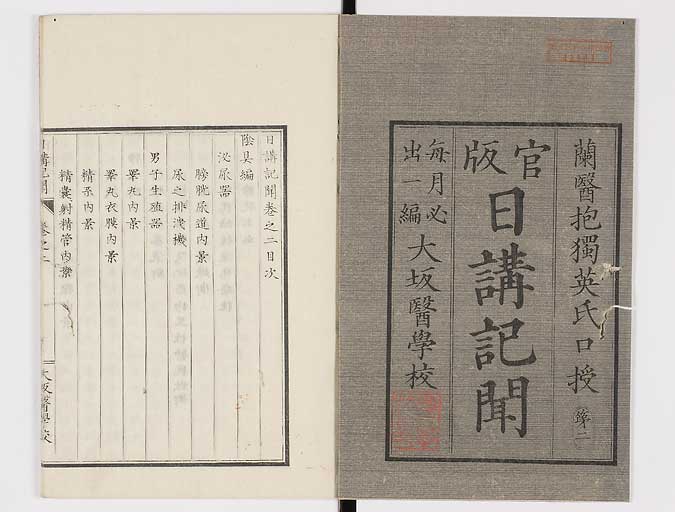 蘭醫抱獨英氏口授 第二
官版
日講記聞
每月必
出一編
大坂醫學校
日講記聞卷之二目次
陰具編
泌尿器
膀胱尿道內景
尿之排洩機
男子生殖器
睾丸內景
睾丸衣膜內景
精系內景
精囊射精管內景
日講記聞 卷之二
大坂醫學校